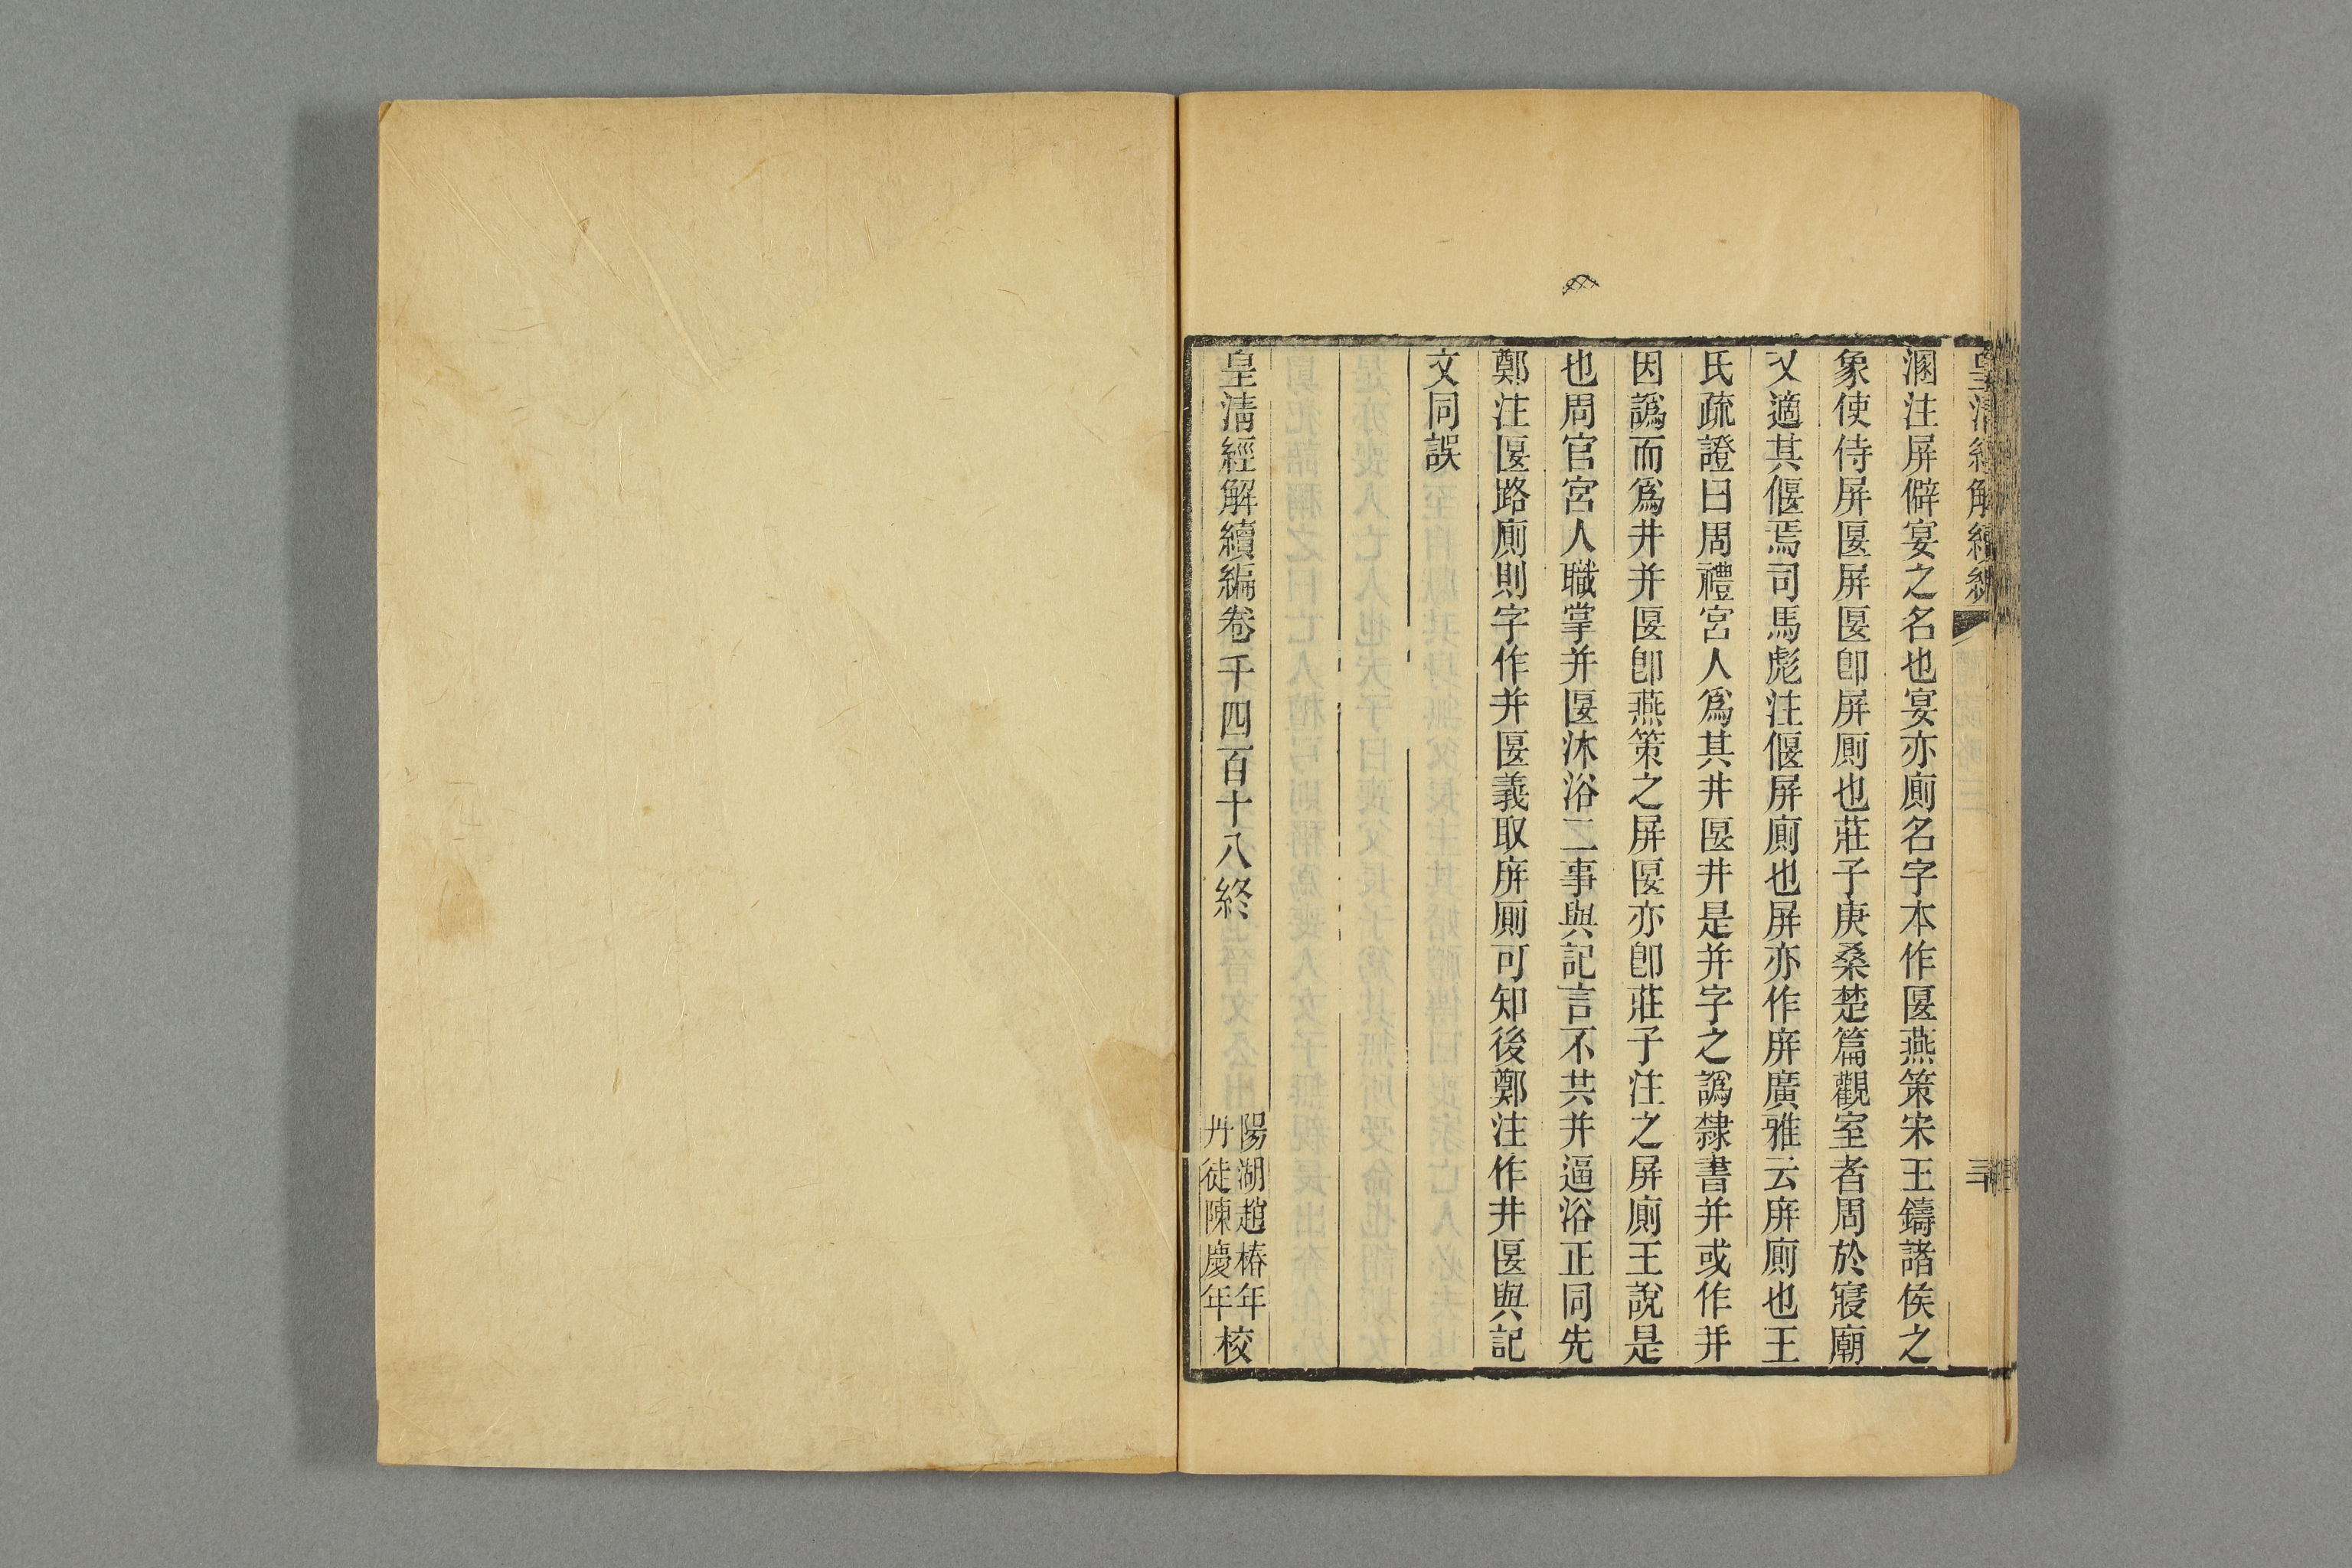 皇清經解續編
溷注屏僻宴之名也宴亦廁名字本作匽燕策宋王鑄諸侯之
象使侍屏匽屏匽卽屏厠也莊子庚桑楚篇觀室者周於寢廟
又適其偃焉司馬彪注偃屏廁也屏亦作庰廣雅云庰廁也王
氏疏證曰周禮宮人爲其井匽井是并字之譌隸書并或作幷
因譌而爲井并匽卽燕策之屏匽亦卽莊子注之屏廁王說是
也周官宮人職掌并匽沐浴二事與記言不共井逼浴正同先
鄭注匽路廁則字作并匽義取庰厠可知後鄭注作井匽與記
文同誤
皇清經解續編卷千四百十八終
陽湖趙椿年
丹徒陳慶年校